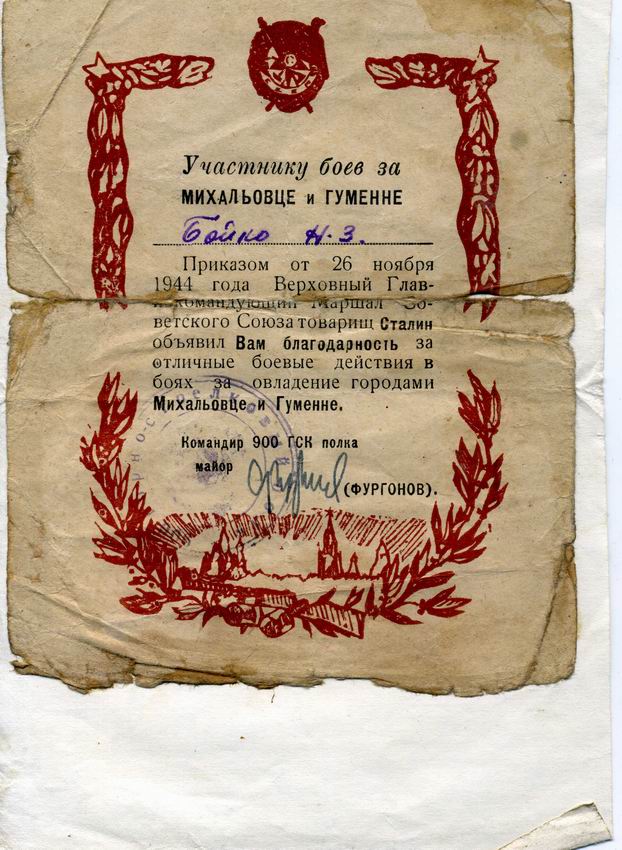 Участнику боев за
МИХАЛЬОВЦЕ и ГУМЕННЕ
Бойко Н.З.
Приказом от 26 ноября
1944 года Верховный Глав-
нокомандующий Маршал Со-
ветского Союза товарищ Сталин
объявил Вам благодарность за
отличные боевые действия в
боях за овладение городами
Михальовце и Гуменне.
Командир 900 ГСК полка
майор
(ФУРГОНОВ).